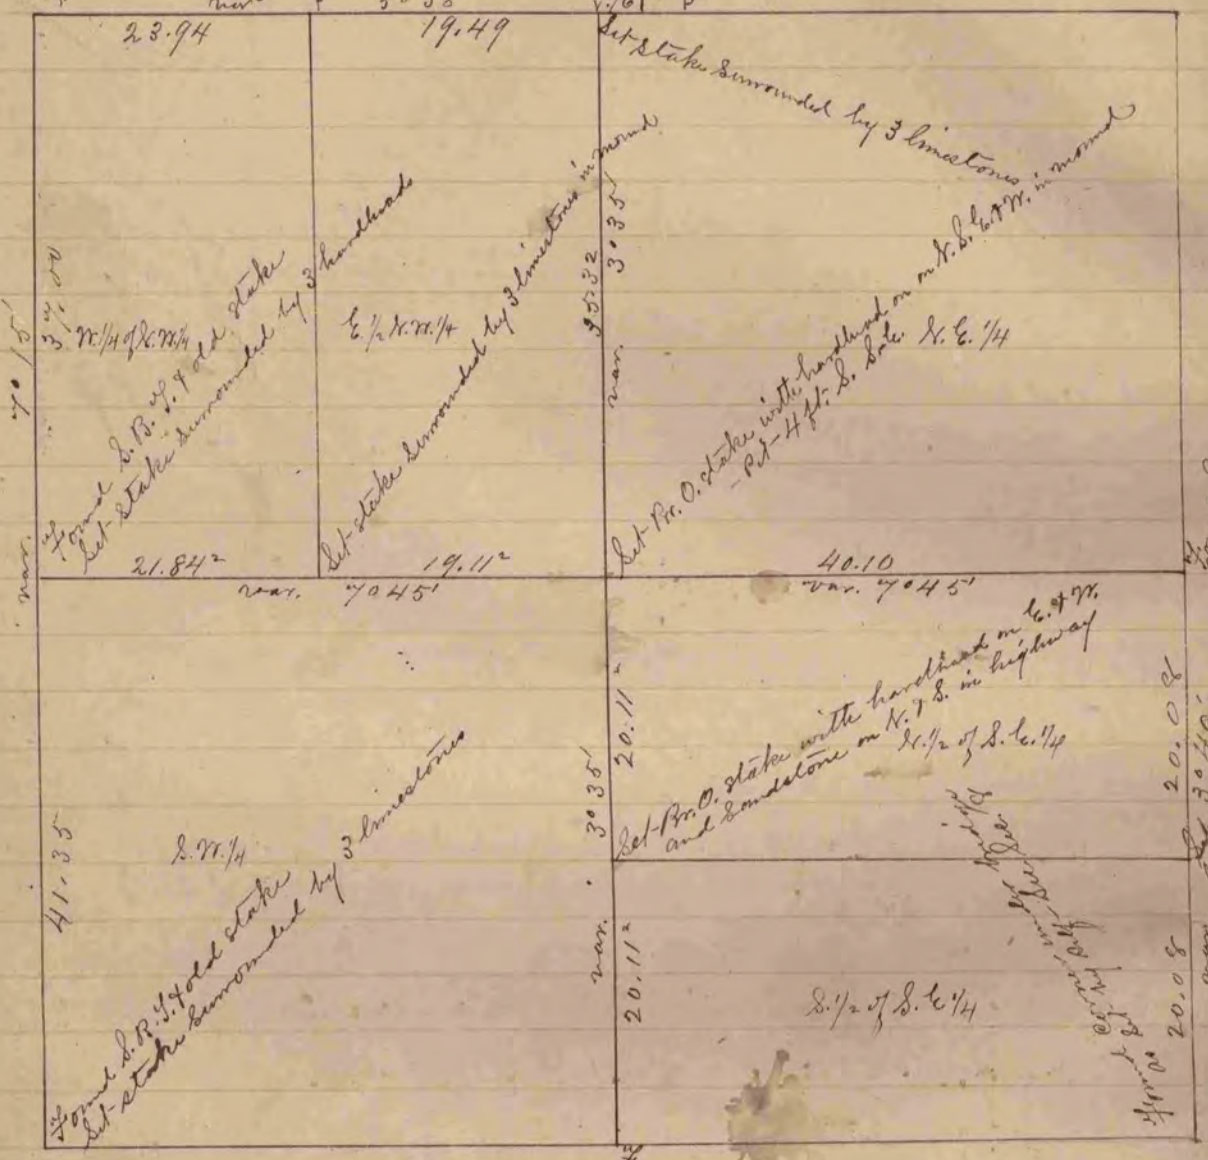 var. 3° 38'
23.94
19.49
Set stake surrounded by 3 limestones
37.00
W. 1/4 of N.W. 1/4
Found S. B. T. & old stake
Set stake surrounded by 3 hardheads
E. 1/2 N.W. 1/4
Set stake surrounded by 3 limestones in mound
var. 3° 35'
Set Br. O. stake with hardhead on on N. S. E. & W. in mound
- Pit - 4 ft. S. Side
N. E. 1/4
var. 7° 15'
21.84²
19.11²
40.10
var. 7° 45'
var. 7° 45'
41.35
S.W. 1/4
Found S. B. T. & old stake
Set stake surrounded by 3 limestones
var. 3° 35'
20.11²
Set Br. O. stake with hardhead on E. & W.
and sandstone on N. & S. in highway
N. 1/2 of S. E. 1/4
20.08
var. 3° 40'
20.11²
S. 1/2 of S. E. 1/4
Found corner under
as set by
20.08